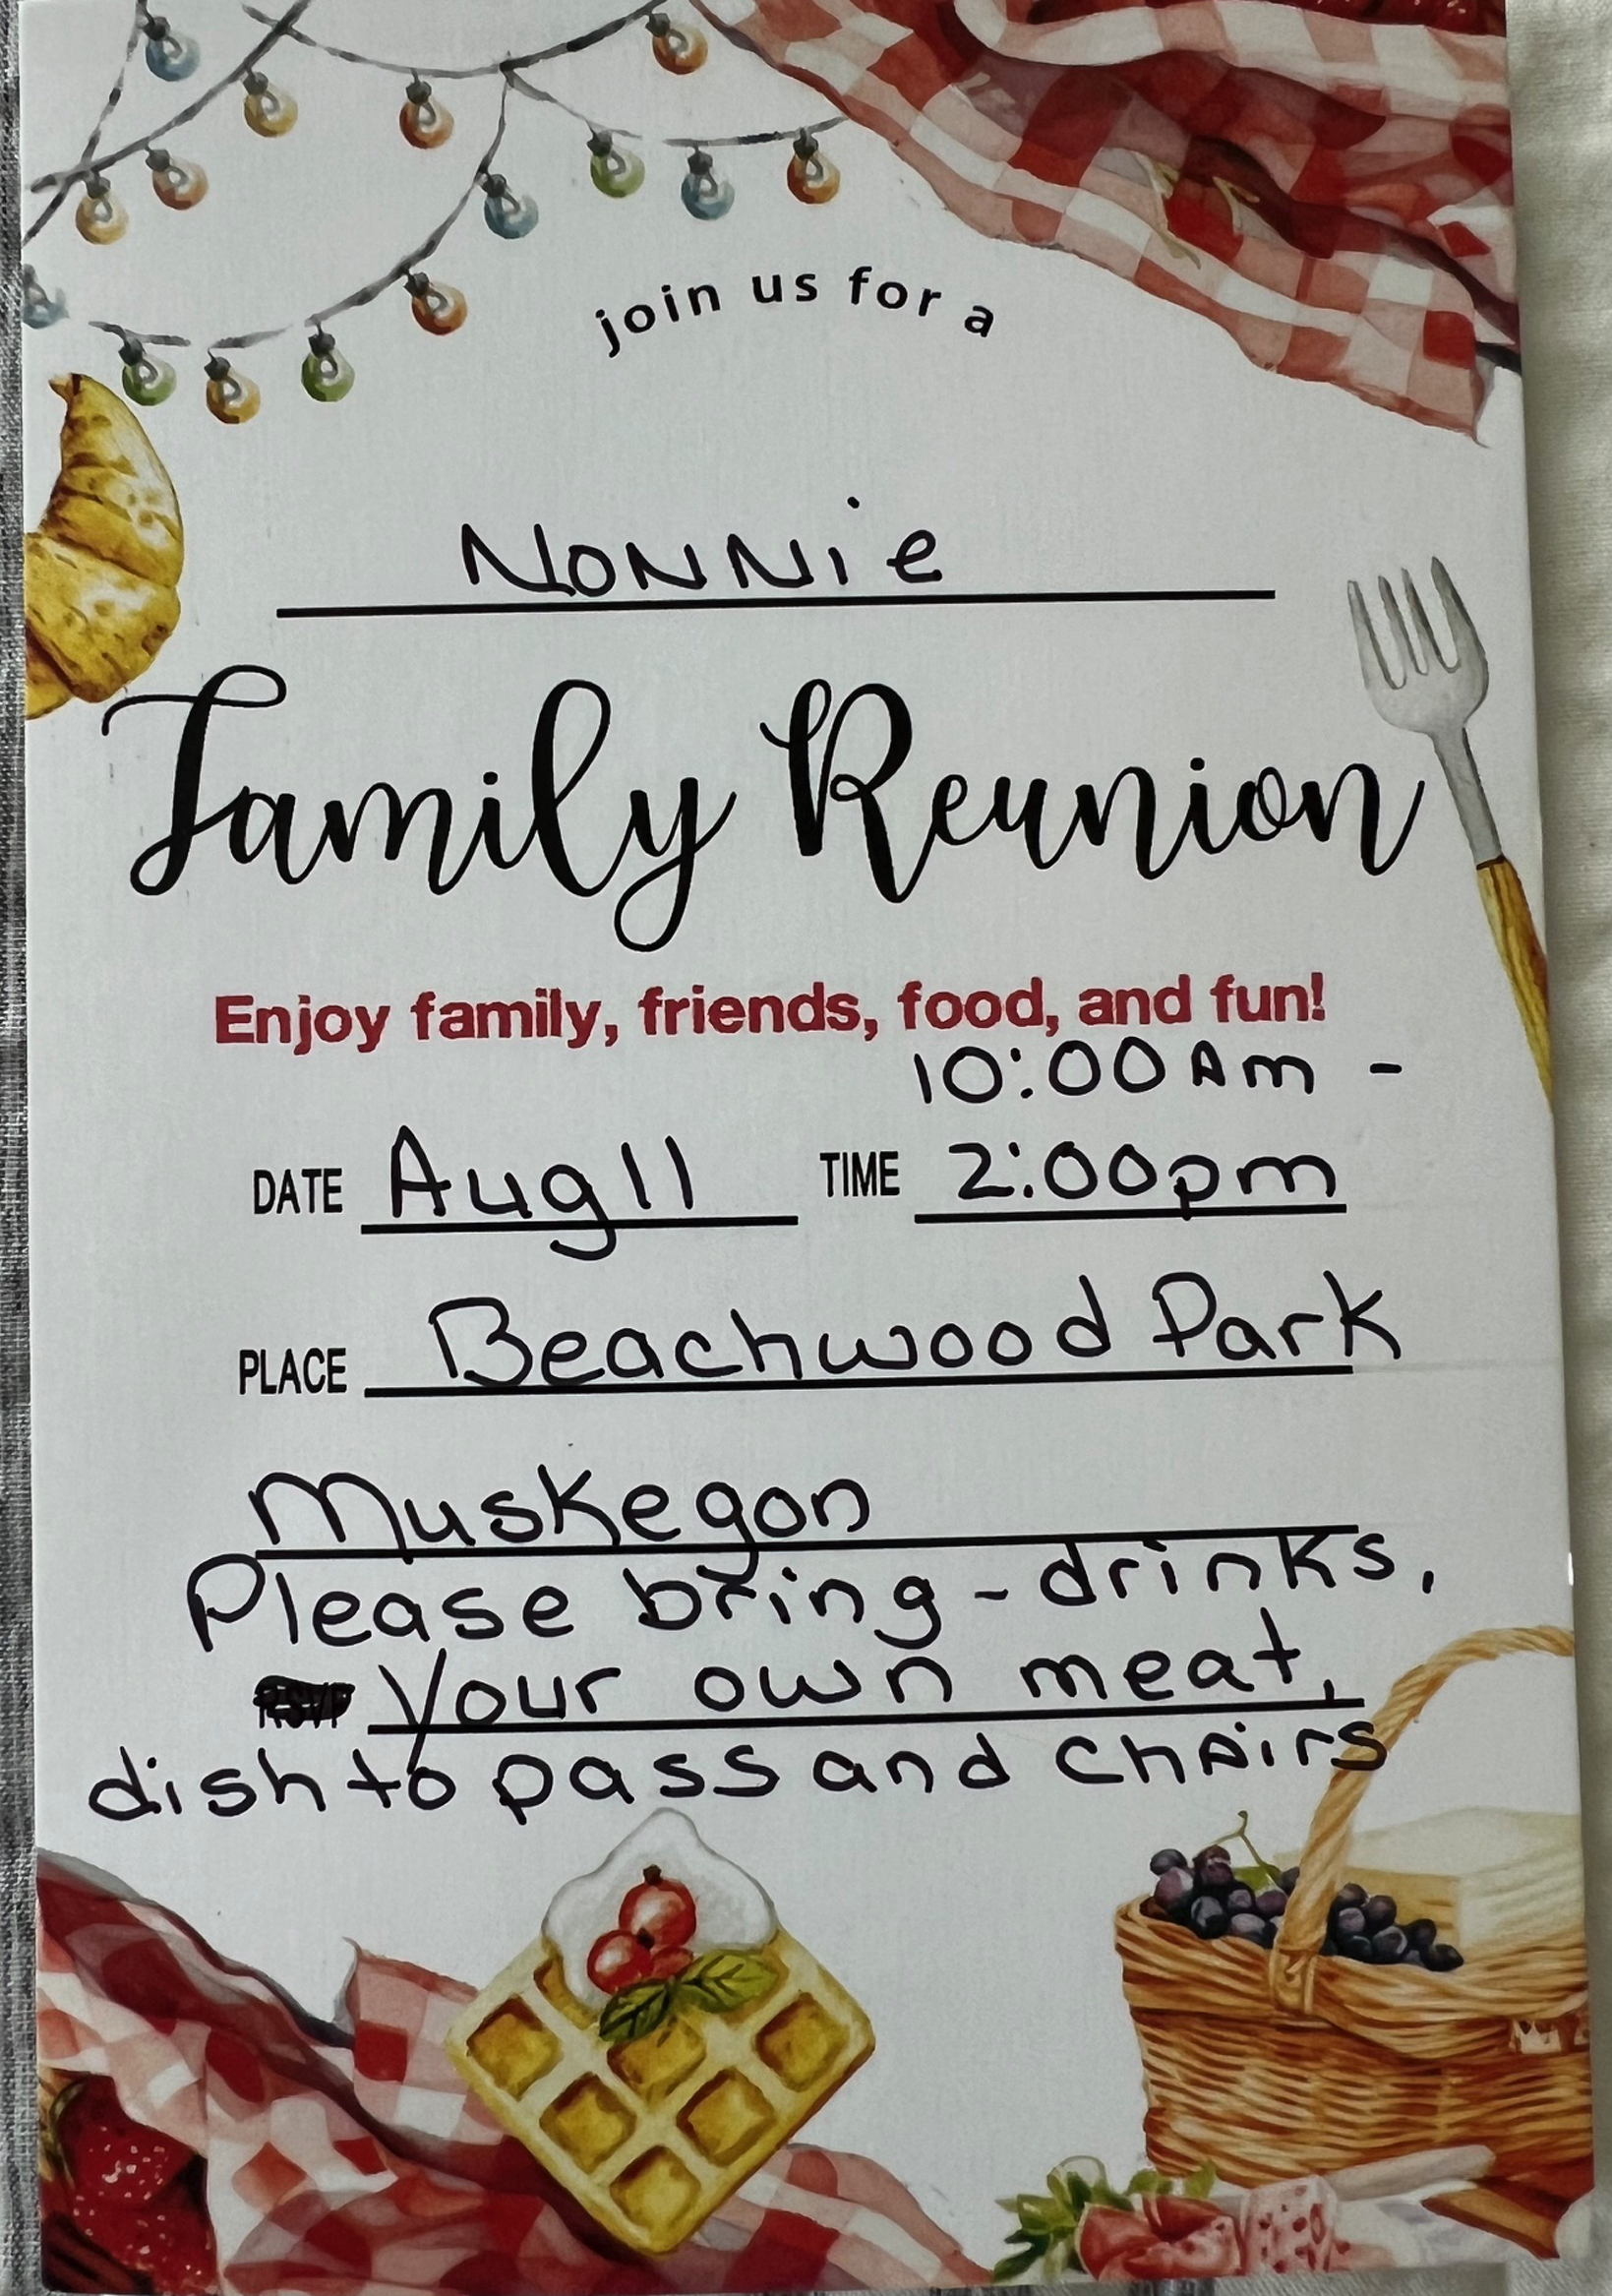 join us for a
Nonnie
Family Reunion
Enjoy family, friends, food, and fun!
10:00 Am -
DATE Aug 11 TIME 2:00pm
PLACE Beachwood Park
Muskegon
Please bring - drinks,
RSVP Your own meat,
dish to pass and chairs